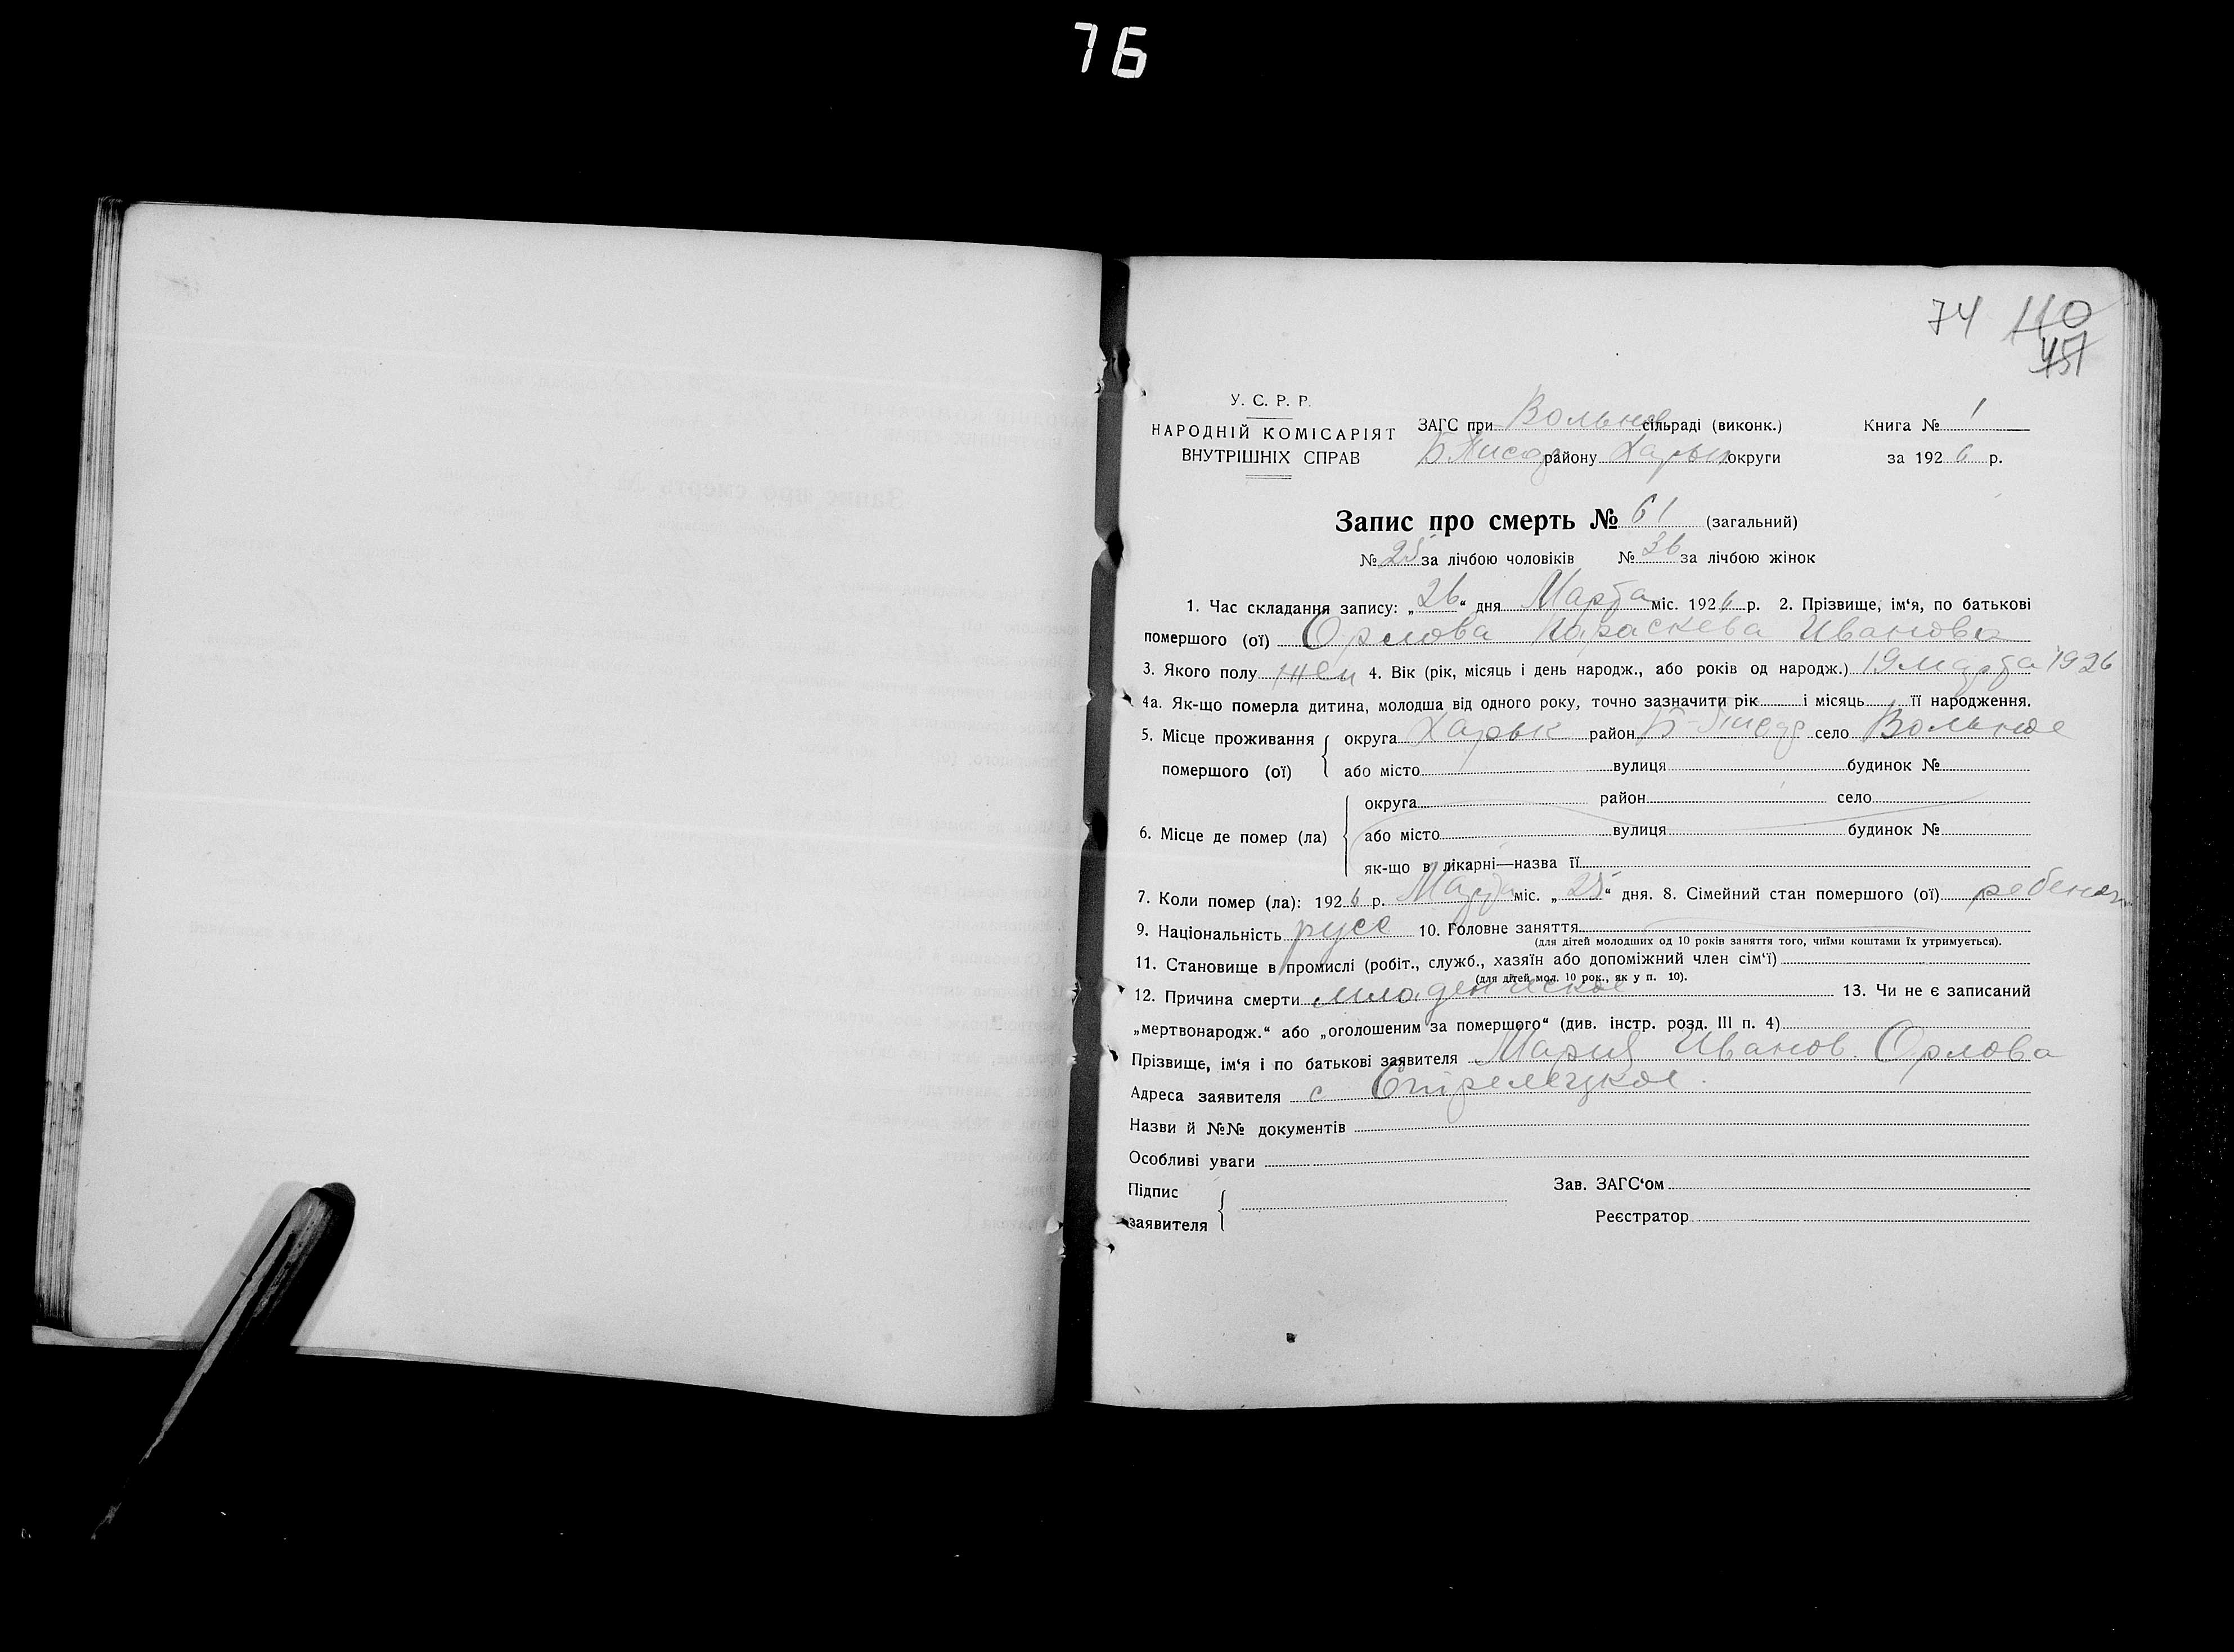 76
74 110
451
У. С. Р. Р.
НАРОДНІЙ КОМІСАРІЯТ
ВНУТРІШНІХ СПРАВ
ЗАГС при Вольнов сільраді (виконк.) Книга № 1
Б Писар району Харьк округи за 1926 р.
Запис про смерть № 61 (загальний)
№ 25 за лічбою чоловіків № 36 за лічбою жінок
1. Час складання запису: „26“ дня Марта міс. 1926 р. 2. Прізвище, ім‘я, по батькові
помершого (ої) Орлова Параскева Ивановна
3. Якого полу жен 4. Вік (рік, місяць і день народж., або років од народж.) 19 марта 1926
4а. Як-що померла дитина, молодша від одного року, точно зазначити рік і місяць її народження.
5. Місце проживання помершого (ої) округа Харьк район Б-Писар село Вольное
або місто вулиця будинок №
6. Місце де помер (ла) округа район село
або місто вулиця будинок №
як-що в лікарні—назва її
7. Коли помер (ла): 1926 р. Марта міс. „25“ дня. 8. Сімейний стан помершого (ої) ребенок
9. Національність русс 10. Головне заняття
(для дітей молодших од 10 років заняття того, чиїми коштами їх утримується).
11. Становище в промислі (робіт., служб., хазяїн або допоміжний член сім‘ї)
(для дітей мол. 10 рок., як у п. 10).
12. Причина смерти младенческое 13. Чи не є записаний
„мертвонародж.“ або „оголошеним за помершого“ (див. інстр. розд. III п. 4)
Прізвище, ім‘я і по батькові заявителя Мария Иванов. Орлова
Адреса заявителя с Стрелецкое.
Назви й №№ документів
Особливі уваги
Підпис заявителя
Зав. ЗАГС‘ом
Реєстратор